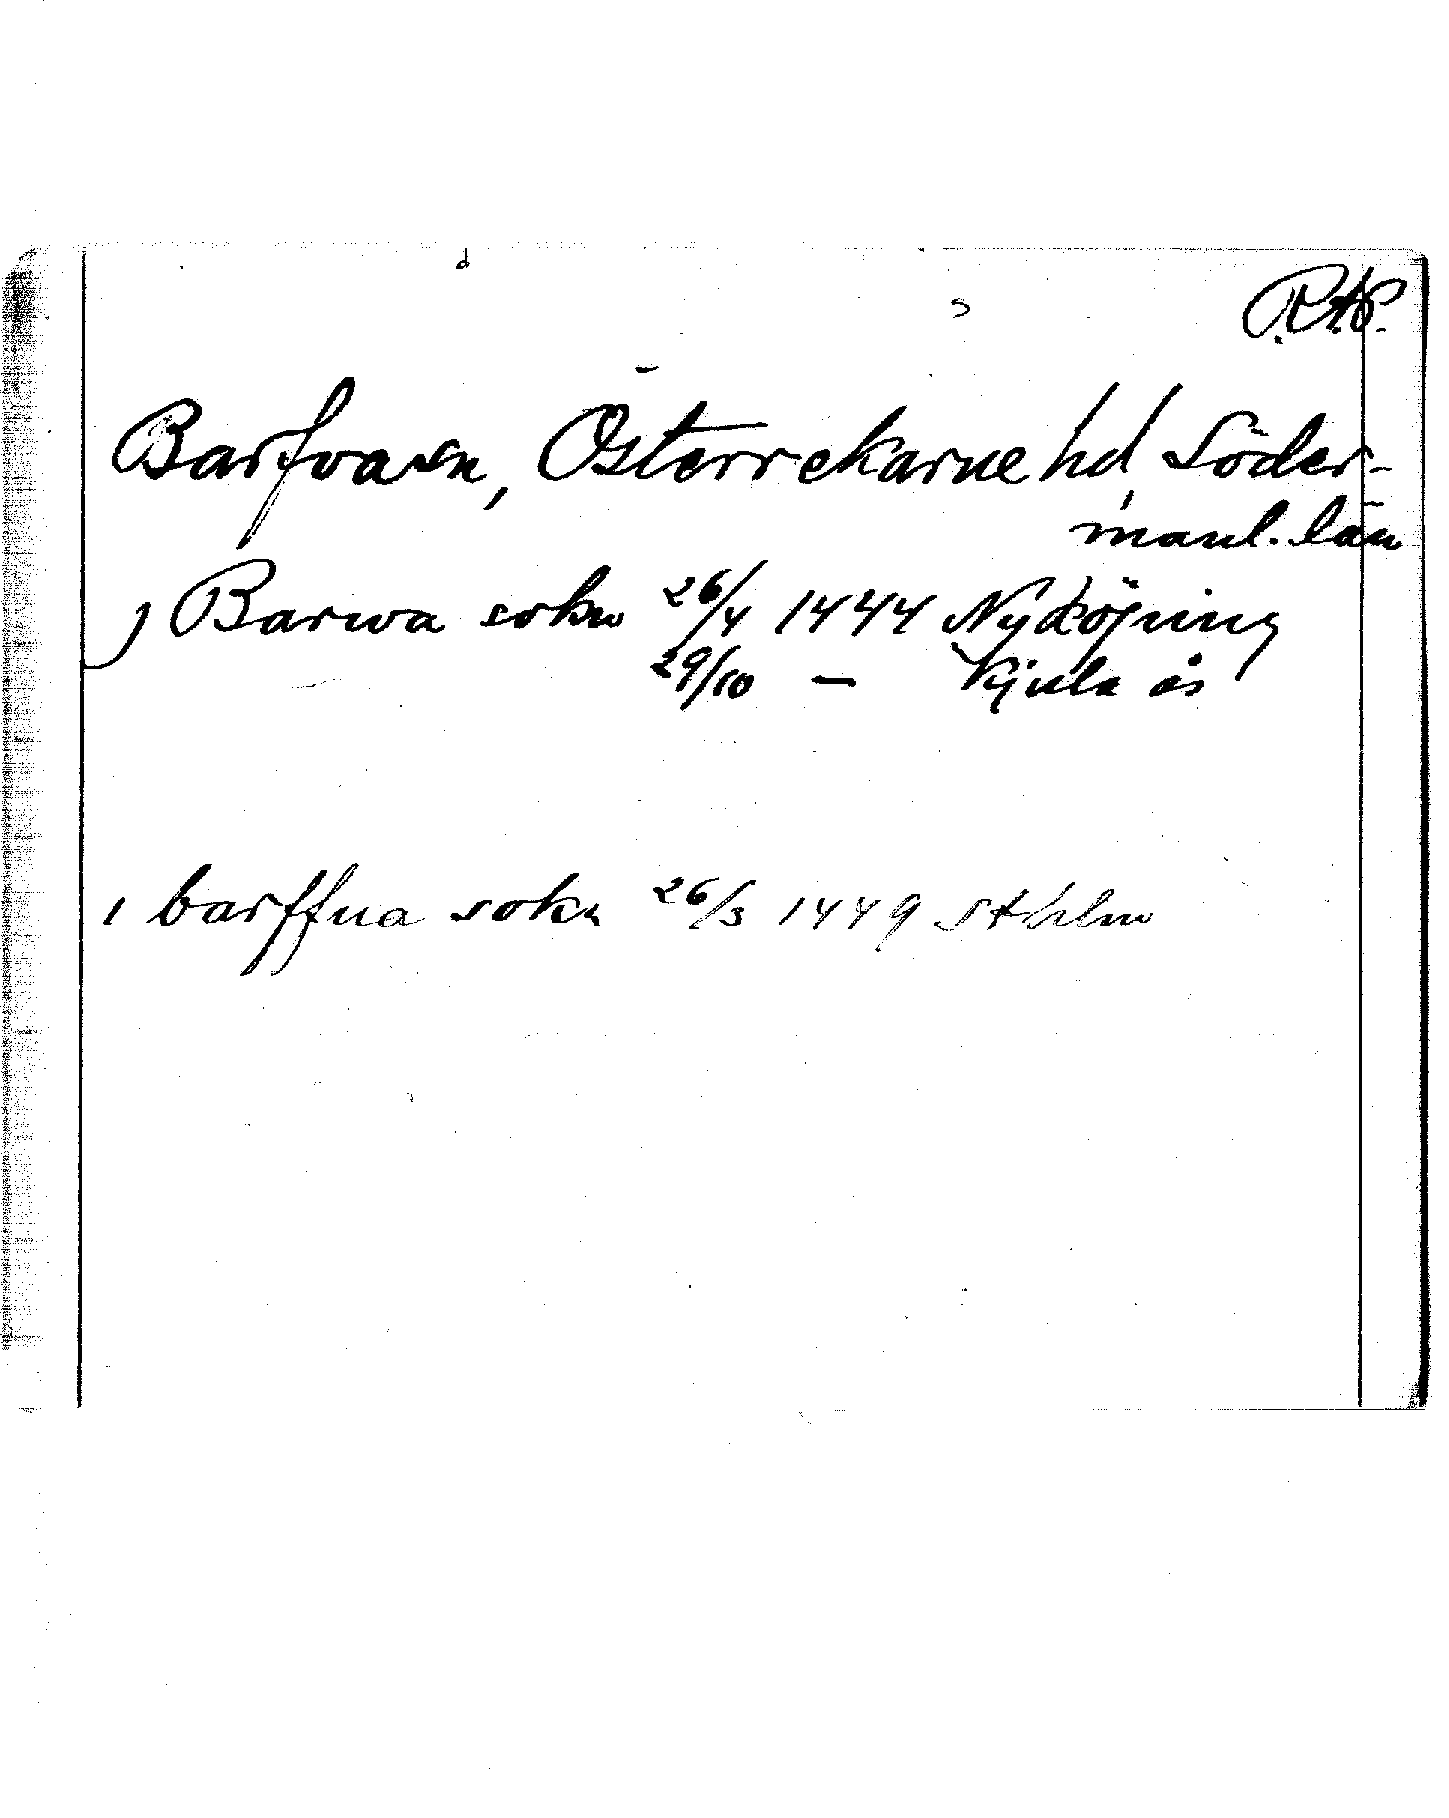 R.A.P.
Barfva sn, Österrekarne hd, Söder-
manl. län
j Barwa sokn 26/4 1444 Nyköping
29/10 — Kjula ås
i barffua sokn 26/3 1449 Sthlm